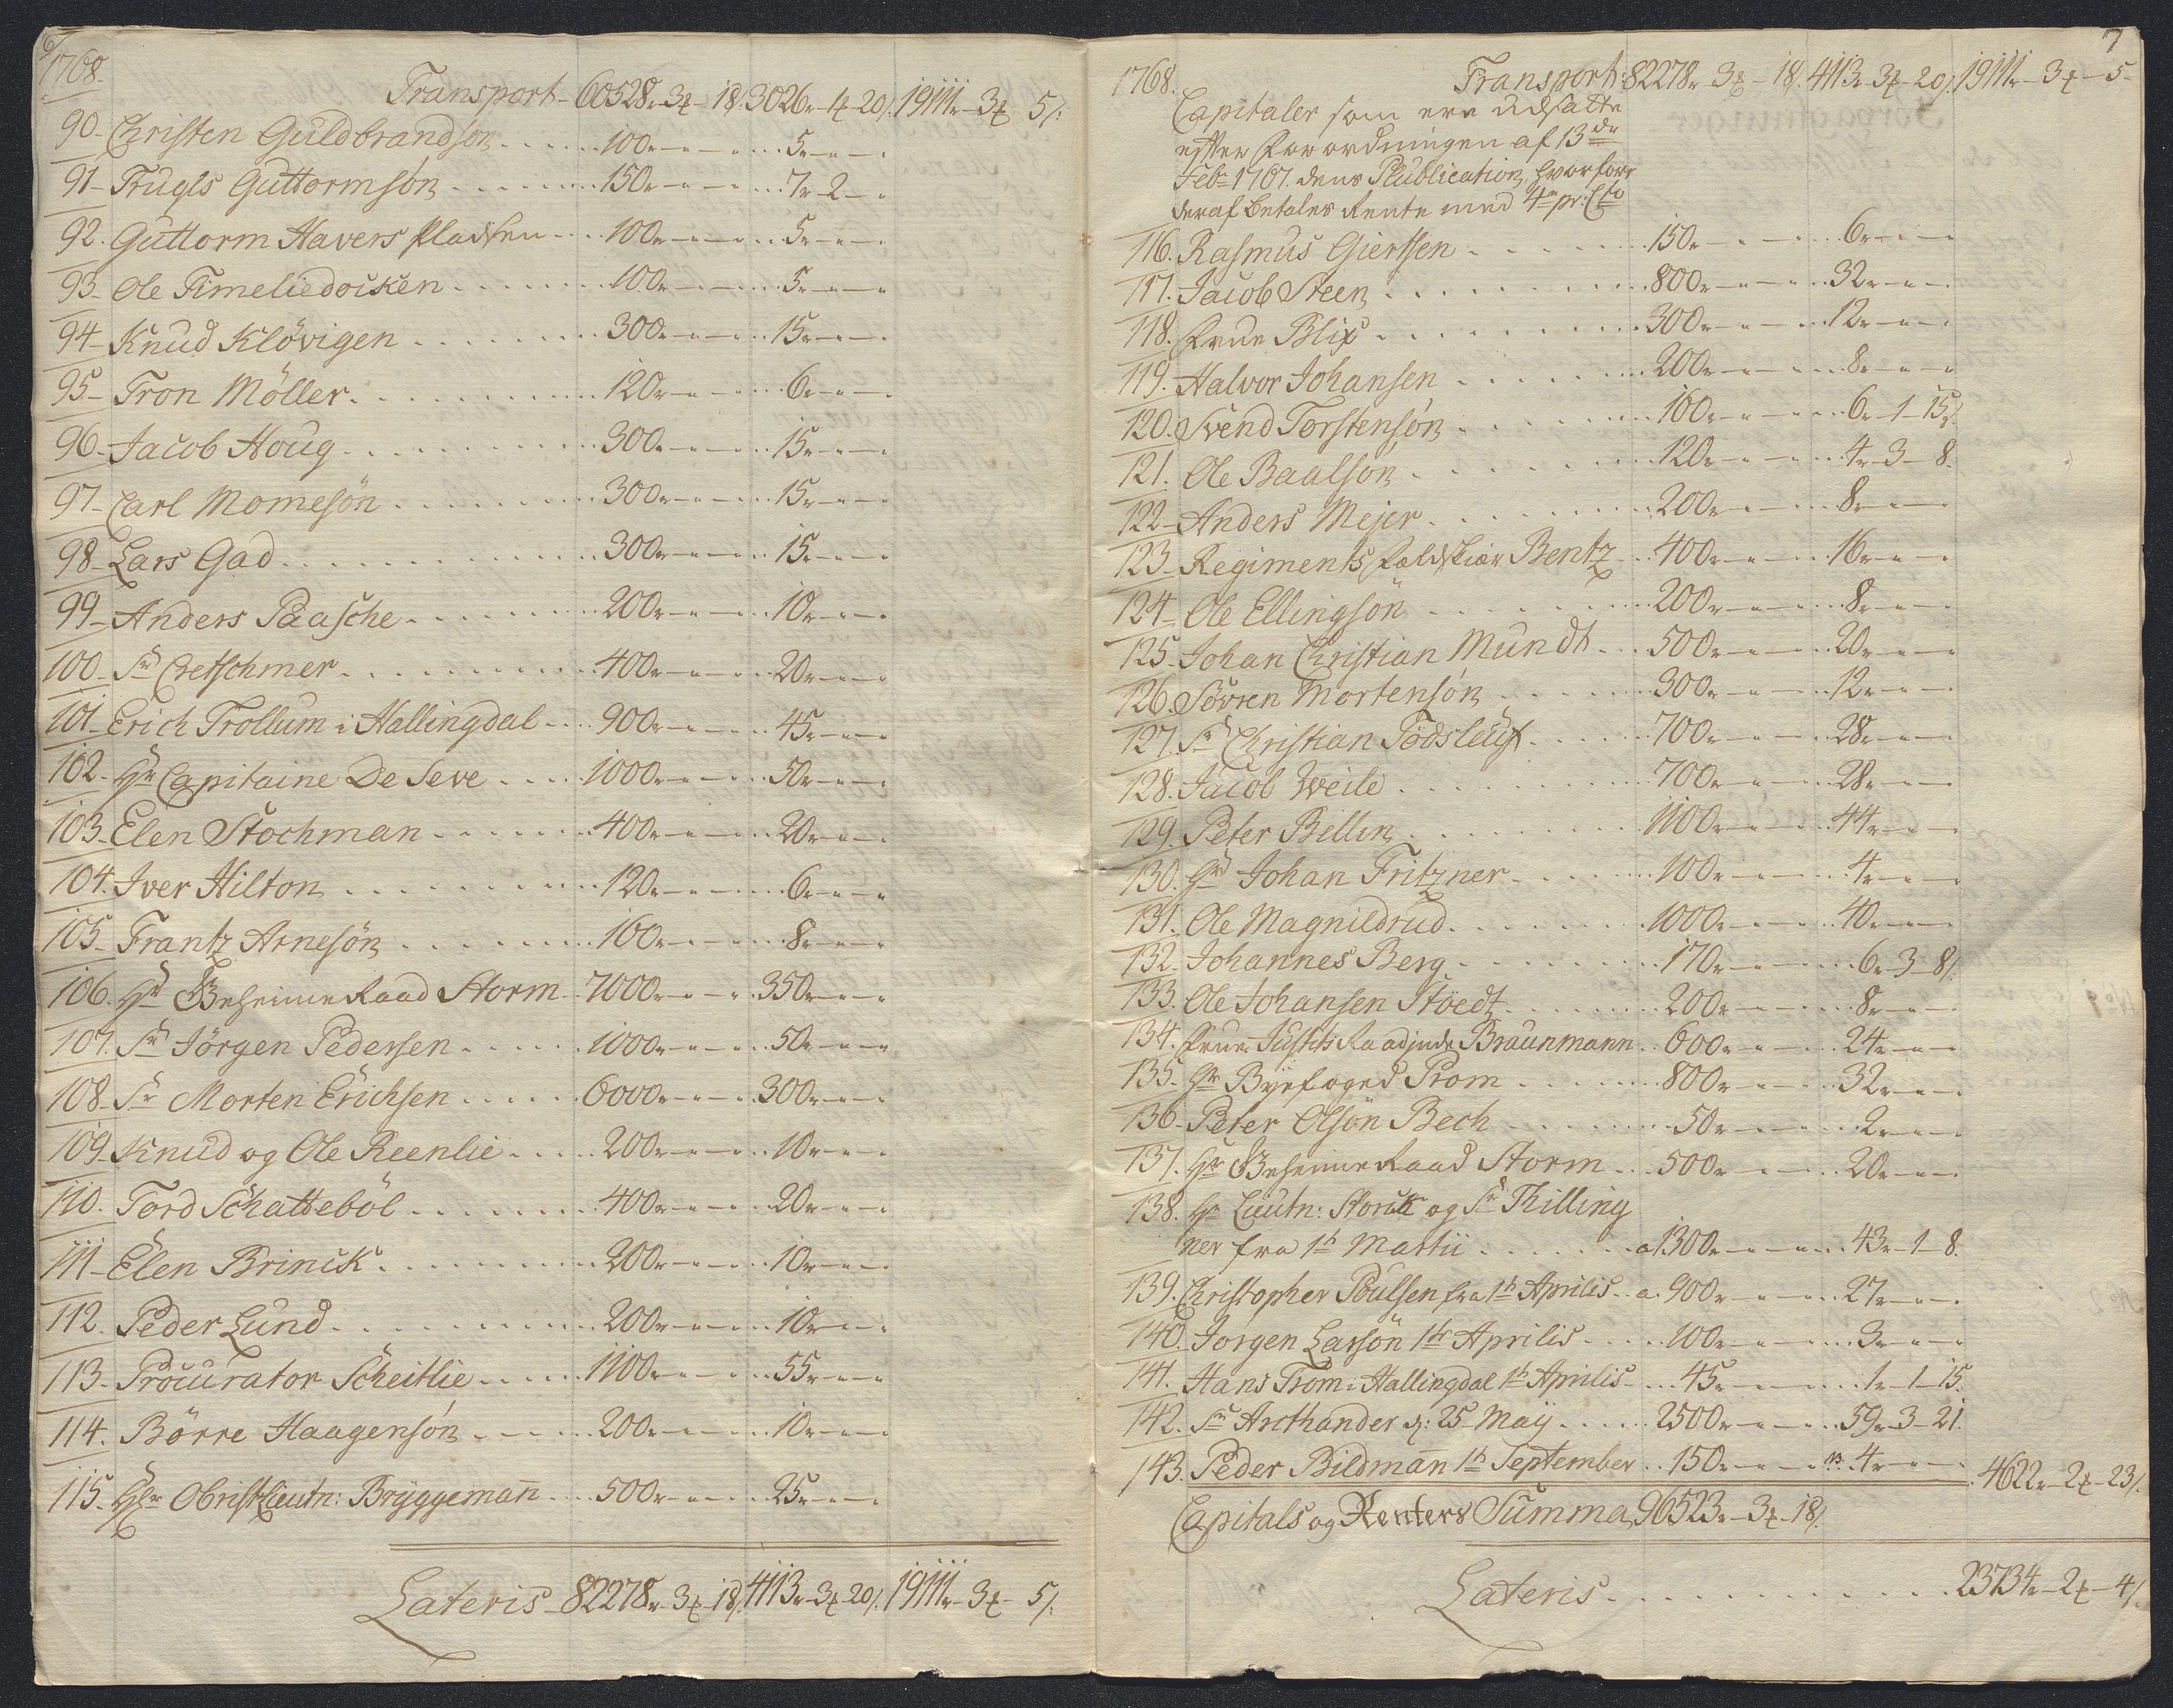 6
1768.
Transport - 60528r - 3ƶ - 18/. 3026r - 1ƶ - 20/. 19111r - 3ƶ 5/.
90 - Christen Guldbrandsøn . . . . . 100r - " - " . . 5r - " - "
91 - Trugls Guttormsøn . . . . . 150r - " - " . . 7r - 2 - "
92. Guttorm Havers Pladsen . . . 100r - " - " . . 5r - " - "
93 - Ole Timeliedocken . . . . . 100r - " - " . . 5r - " - "
94 - Knud Klövigen . . . . . 300r - " - " . . 15r - " - "
95 - Tron Möller . . . . . 120r - " - " . . 6r - " - "
96 - Jacob Houg . . . . . 300r - " - " . . 15r - " - "
97 - Carl Momesön . . . . . 300r - " - " . . 15r - " - "
98 - Lars Gad . . . . . 300r - " - " . . 15r - " - "
99 - Anders Paasche . . . . . 200r - " - " . . 10r - " - "
100 - Sr Cretschmer . . . . . 400r - " - " . . 20r - " - "
101 - Erich Trollum i Hallingdal . . . 900r - " - " . . 45r - " - "
102 - Hr Capitaine De Seve . . . . 1000r - " - " . . 50r - " - "
103 - Elen Stochman . . . . . 400r - " - " . . 20r - " - "
104. Iver Hilton . . . . . 120r - " - " . . 6r - " - "
105 - Frantz Arnesön . . . . . 160r - " - " . . 8r - " - "
106. Hr Geheime Raad Storm . . 7000r - " - " . 350r - " - "
107. Sr Jörgen Pedersen . . . . . 1000r - " - " . . 50r - " - "
108 - Sr Morten Erichsen . . . . . 6000r - " - " . 300r - " - "
109. Knud og Ole Reenlie . . . . 200r - " - " . . 10r - " - "
110. Tord Schatteböl . . . . . 400r - " - " . . 20r - " - "
111 - Elen Brinck . . . . . 200r - " - " . . 10r - " - "
112. Peder Lund . . . . . 200r - " - " . . 10r - " - "
113 - Procurator Scheitlie . . . . . 1100r - " - " . . 55r - " - "
114. Börre Haagensön . . . . . 200r - " - " . . 10r - " - "
115. Hr Obristlieutn: Bryggeman̄ . . . 500r - " - " . . 25r - " - "
Lateris - 82278r - 3ƶ - 18/. 4113r - 3ƶ - 20/. 19111r - 3ƶ - 5/.
7
1768. Transport: 82278r - 3ƶ - 18/. 4113r - 3ƶ - 20/. 19111r - 3ƶ - 5 -
Capitaler som ere udsatte
efter Forordningen af 13de
Febr 1767. dens Publication, hvorfore
deraf betales Rente med 4r pr: Cto
116. Rasmus Giertsen . . . . . 150r - " - " . . 6r - " - "
117. Jacob Steen . . . . . 800r - " - " . . 32r - " - "
118. Frue Blix . . . . . 300r - " - " . . 12r - " - "
119. Halvor Johansen . . . . . 200r - " - " . . 8r - " - "
120. Svend Torstensön . . . . . 160r - " - " . . 6r - 1 - 15/.
121. Ole Baalsön . . . . . 120r - " - " . . 4r - 3 - 8.
122 - Anders Mejer . . . . . 200r - " - " . . 8r - " - "
123 - Regiments Feldskiær Bentz . . 400r - " - " . . 16r - " - "
124 - Ole Ellingsön . . . . . 200r - " - " . . 8r - " - "
125. Johan Christian Mundt . . . 500r - " - " . . 20r - " - "
126. Sövren Mortensön . . . . . 300r - " - " . . 12r - " - "
127. Sr Christian Tödsleuf . . . . . 700r - " - " . . 28r - " - "
128. Jacob Weile . . . . . 700r - " - " . . 28r - " - "
129. Peter Bellin . . . . . 1100r - " - " . . 44r - " - "
130. Hr Johan Fritzner . . . . . 100r - " - " . . 4r - " - "
131. Ole Magnildrud . . . . . 1000r - " - " . . 40r - " - "
132 - Johannes Berg . . . . . 170r - " - " . . 6r - 3 - 8/.
133. Ole Johansen Stöedt . . . . . 200r - " - " . . 8r - " - "
134. Frue Justits Raadinde Braunmann . . 600r - " - " . . 24r - " - "
135. Hr Byefoged Prom . . . . . 800r - " - " . . 32r - " - "
136 - Peter Olsön Bech . . . . . 50r - " - " . . 2r - " - "
137. Hr Geheime Raad Storm . . . 500r - " - " . . 20r - " - "
138. Hr Lieutn: Storck og Sr Thilling
ner fra 1te Martii . . . . . a 1300r - " - " . . 43r - 1 - 8.
139. Christopher Poulsen fra 1te Aprilis . . a. 900r - " - " . . 27r - " - "
140. Jorgen Larsön 1te Aprilis . . . . 100r - " - " . . 3r - " - "
141. Hans Trom i Hallingdal 1te Aprilis . . . 45r - " - " . . 1r - 1 - 15.
142. Sr Arcthander d: 25 Maÿ . . . . 2500r - " - " . . 59r - 3 - 21.
143. Peder Bildman̄ 1te September . . 150r - " - " . . 4r - " - " . 4622r - 2ƶ - 23/.
Capitals og Renters Summa 96523r - 3ƶ - 18/.
Lateris . . . . . 23734r - 2ƶ - 4/.